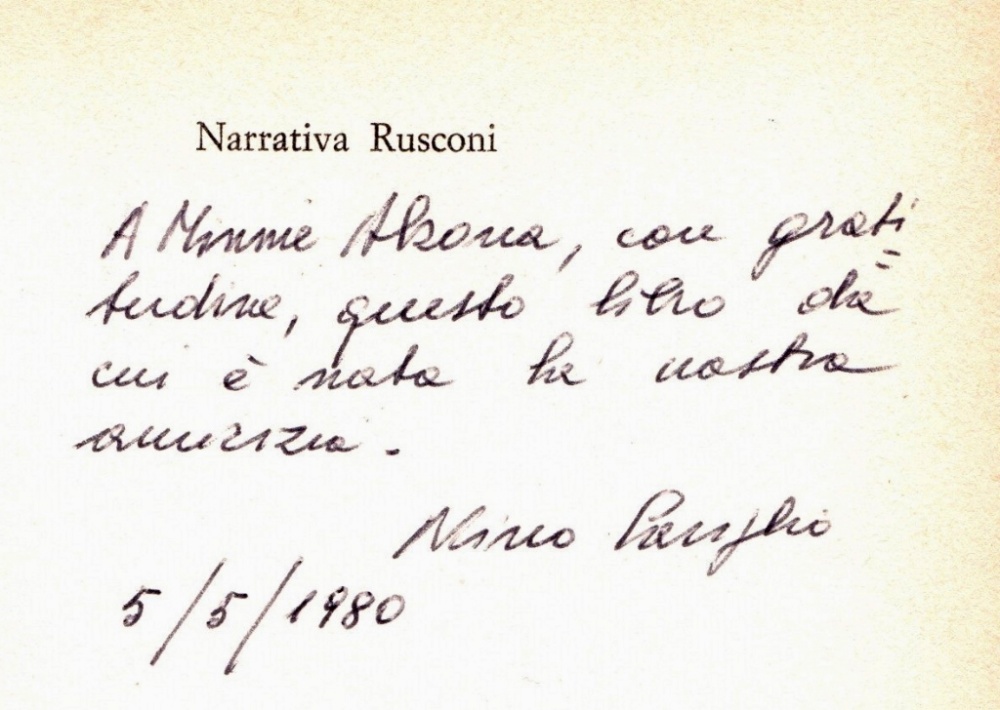 Narrativa Rusconi
A Minnie Alzona, con grati=
tudine, questo libro da
cui è nata la nostra
amicizia.
Nino Casiglio
5/5/1980